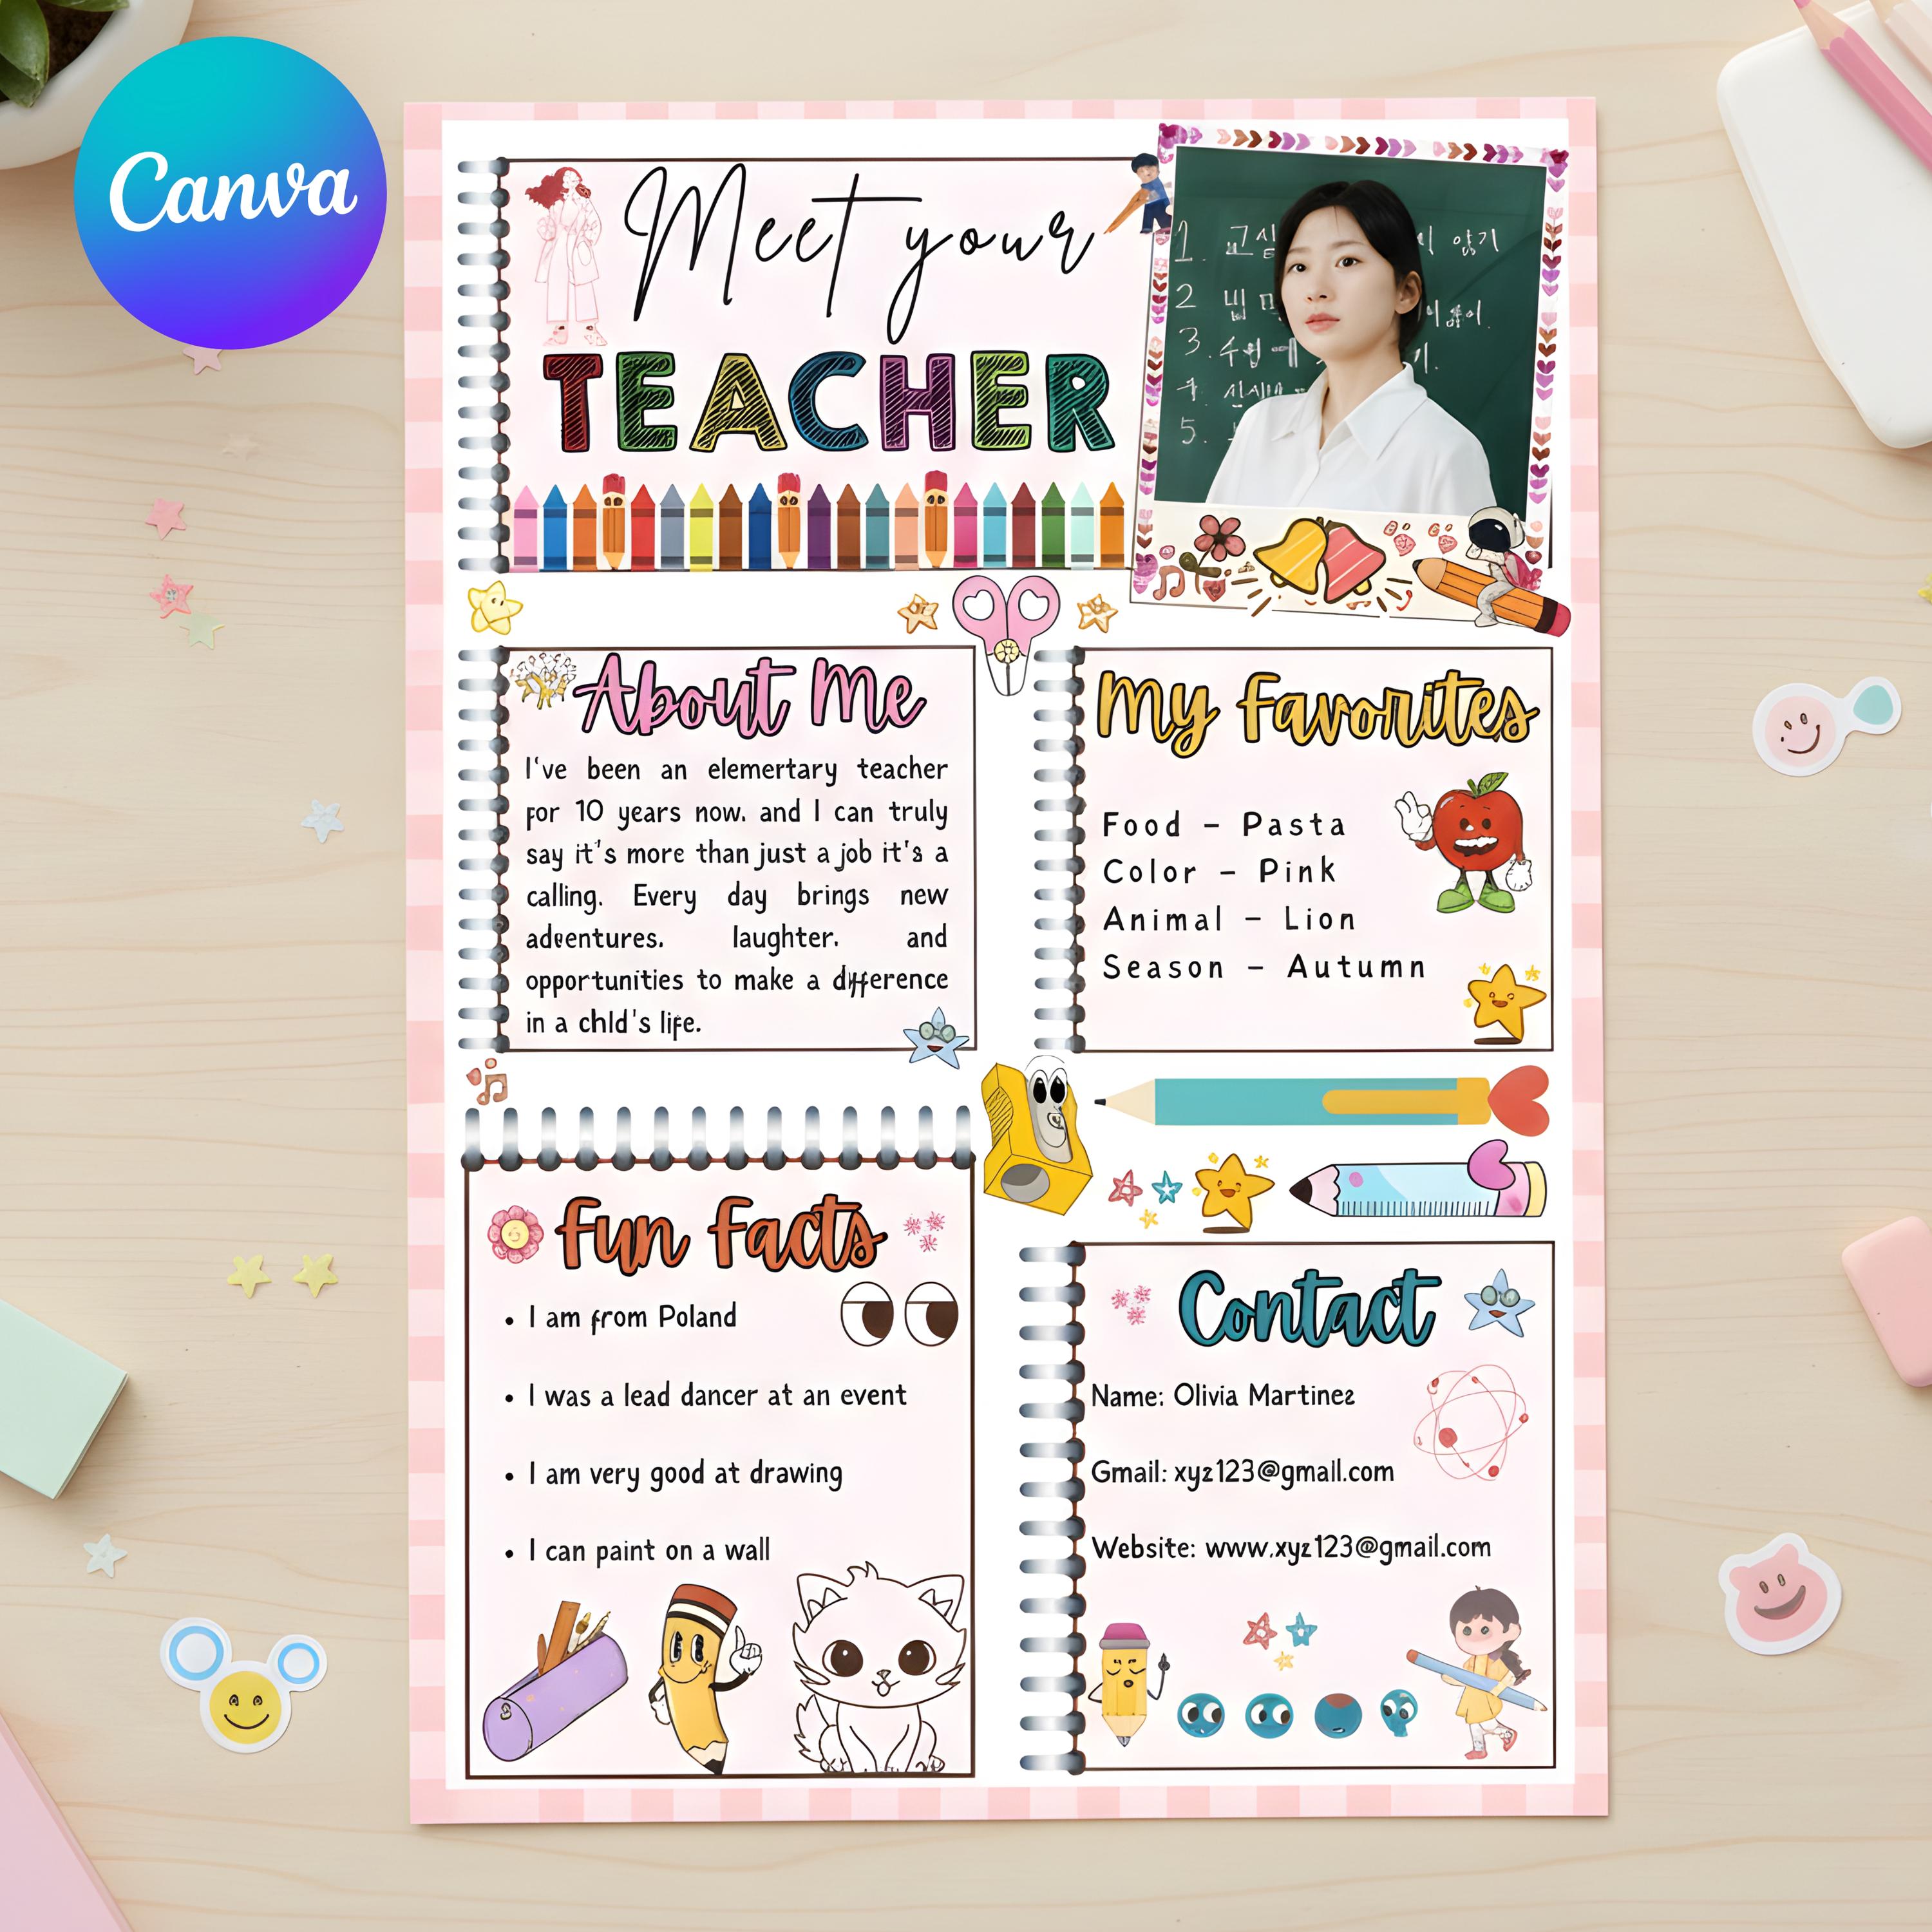 Canva
Meet your
TEACHER
1. 교실 지 않기
2
3. 수업 에 기.
4
5.
About Me
I've been an elemertary teacher
for 10 years now. and I can truly
say it's more than just a job it's a
calling. Every day brings new
adventures. laughter. and
opportunities to make a difference
in a chld's life.
My Favorites
Food – Pasta
Color – Pink
Animal – Lion
Season – Autumn
Fun Facts
• I am from Poland
• I was a lead dancer at an event
• I am very good at drawing
• I can paint on a wall
Contact
Name: Olivia Martinez
Gmail: xyz123@gmail.com
Website: www.xyz123@gmail.com